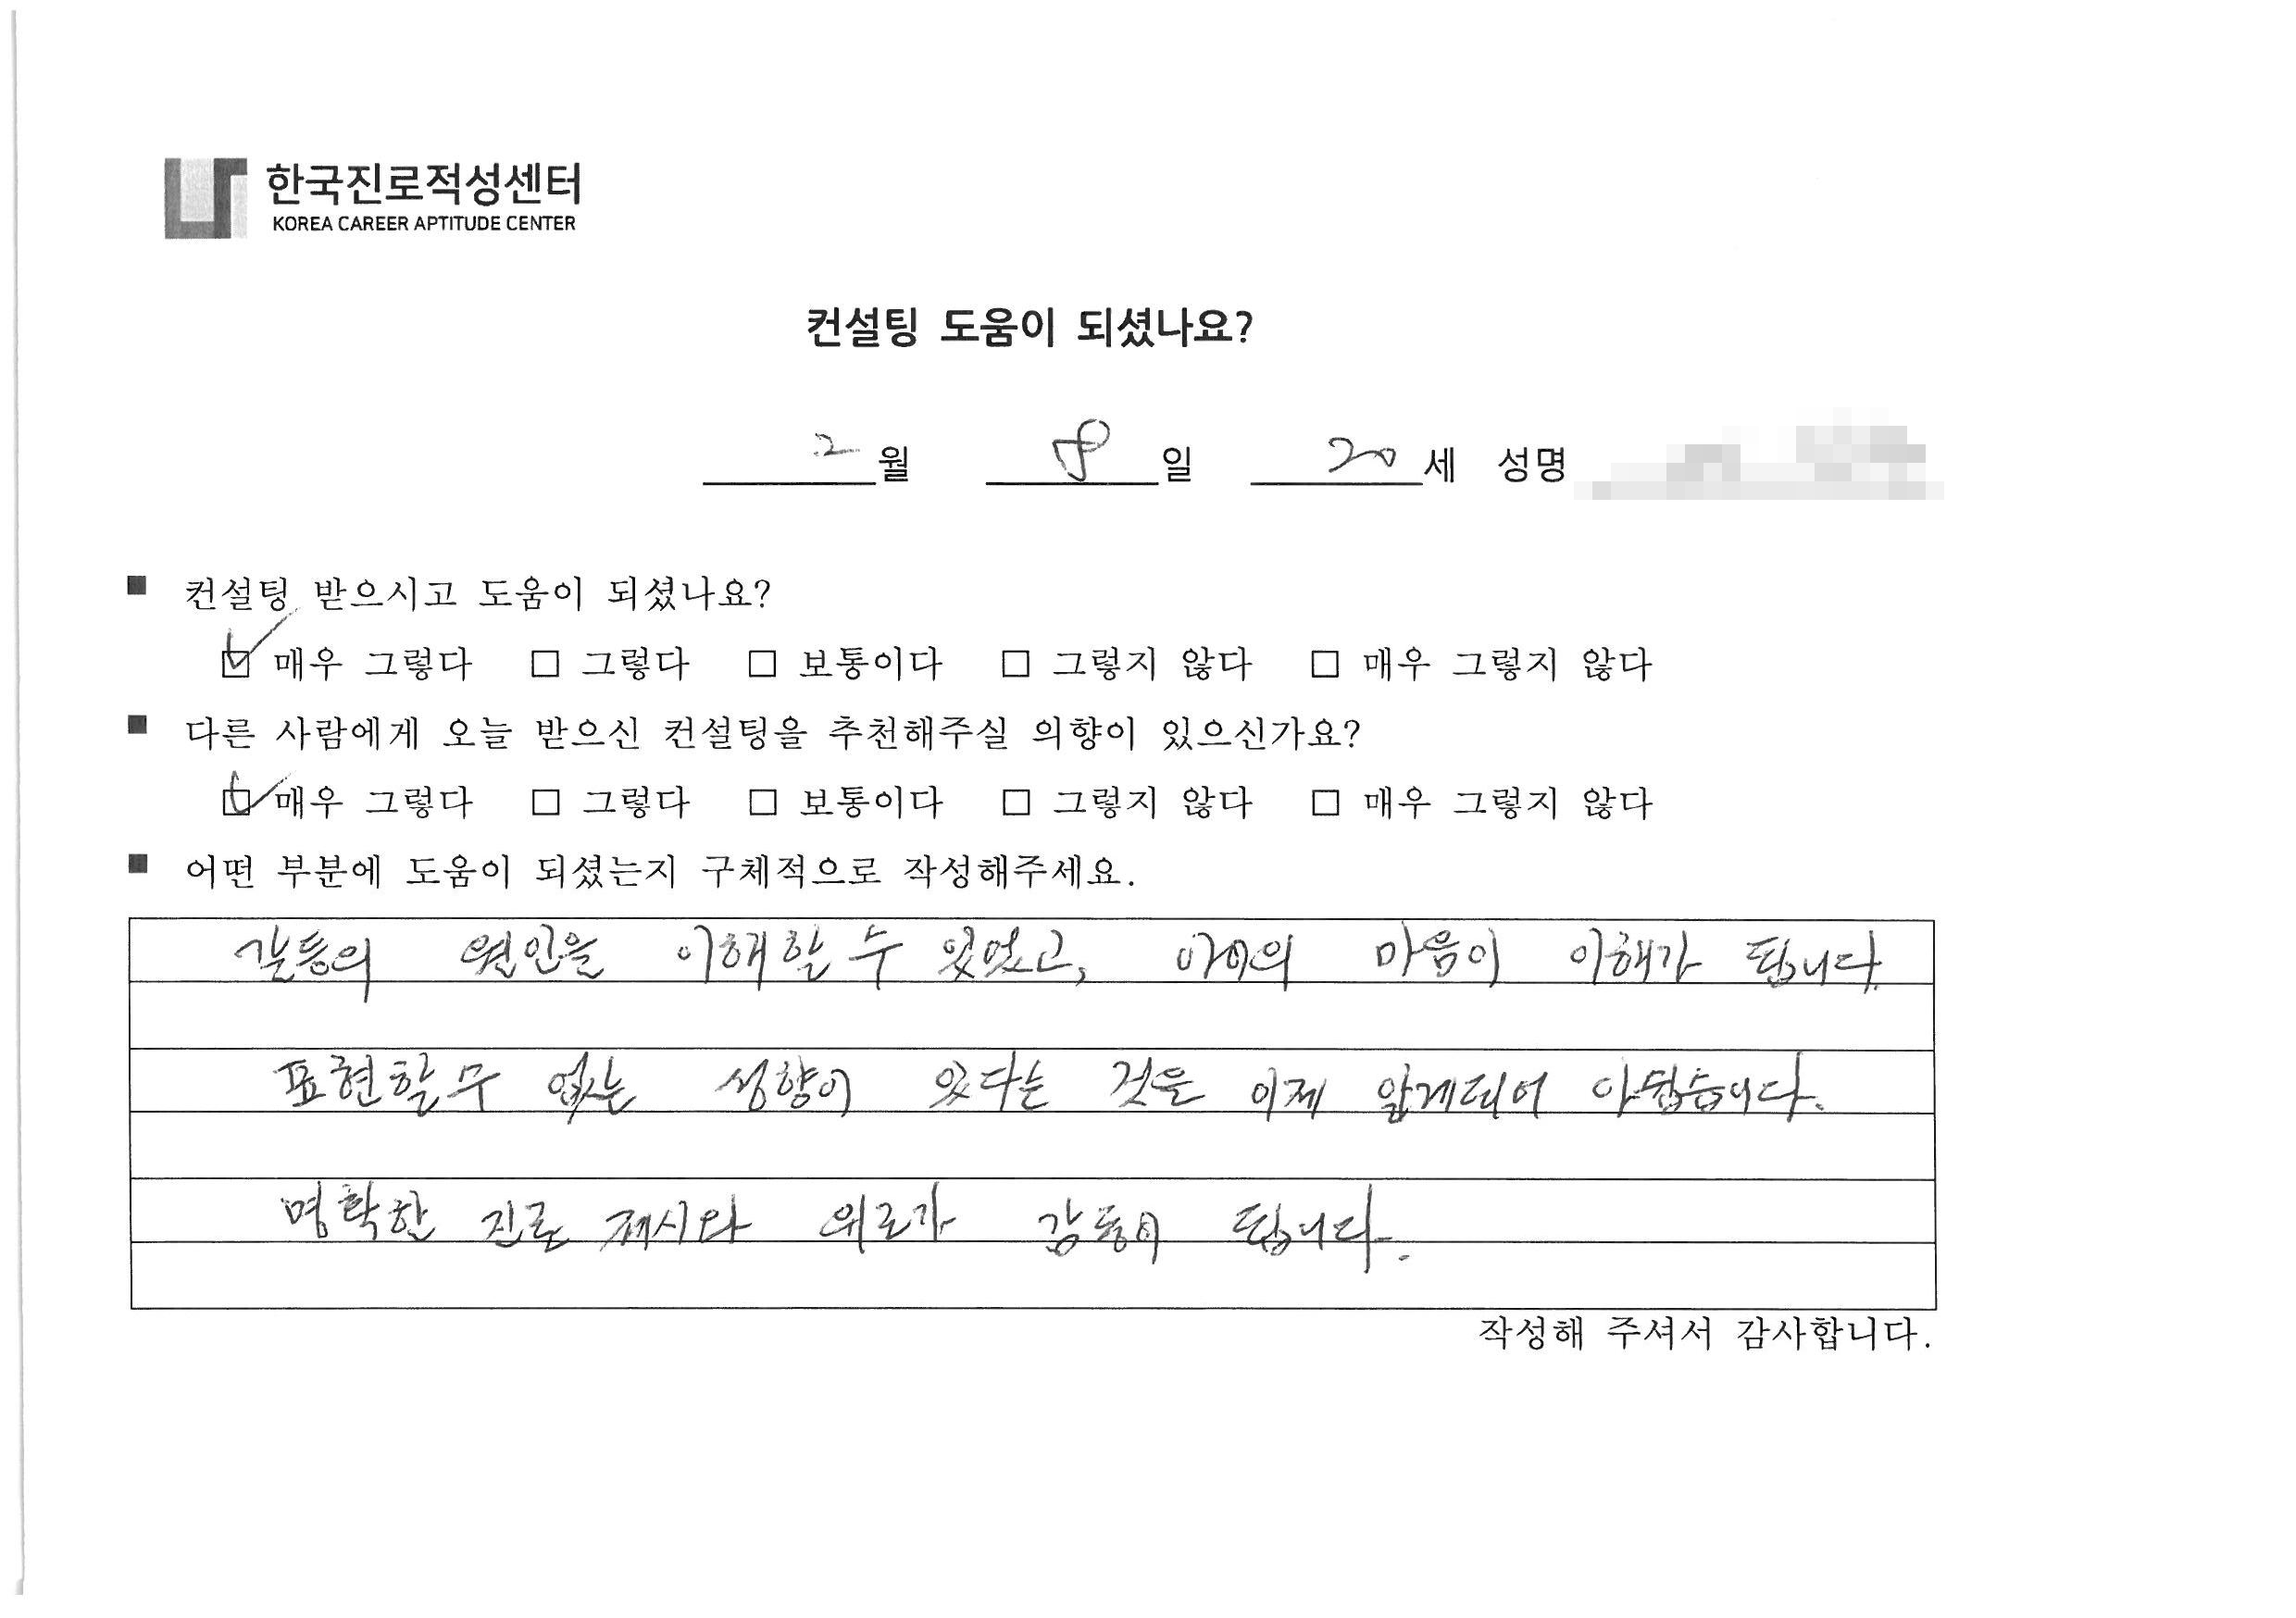 한국진로적성센터
KOREA CAREER APTITUDE CENTER
컨설팅 도움이 되셨나요?
2월 8일 20세 성명
■ 컨설팅 받으시고 도움이 되셨나요?
☑ 매우 그렇다 □ 그렇다 □ 보통이다 □ 그렇지 않다 □ 매우 그렇지 않다
■ 다른 사람에게 오늘 받으신 컨설팅을 추천해주실 의향이 있으신가요?
☑ 매우 그렇다 □ 그렇다 □ 보통이다 □ 그렇지 않다 □ 매우 그렇지 않다
■ 어떤 부분에 도움이 되셨는지 구체적으로 작성해주세요.
갈등의 원인을 이해할 수 있었고, 아이의 마음이 이해가 됩니다.
표현할 수 없는 성향이 있다는 것을 이제 알게되어 아쉽습니다.
명확한 진로 제시와 위로가 감동이 됩니다.
작성해 주셔서 감사합니다.